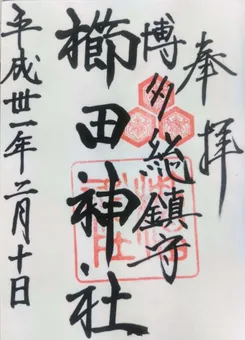 奉拝
博多総鎮守
櫛田神社
平成丗一年二月十日